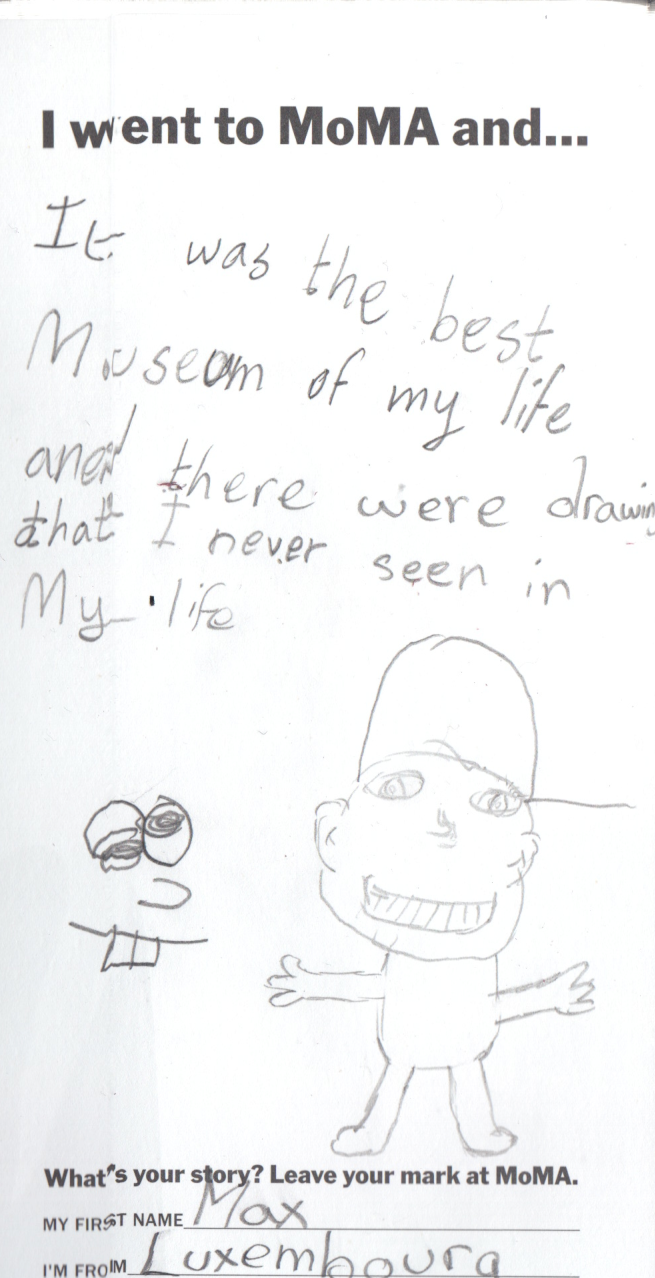 I went to MoMA and...
It was the best
Museum of my life
and there were drawin
that I never seen in
My life
What's your story? Leave your mark at MoMA.
MY FIRST NAME Max
I'M FROM Luxembourg